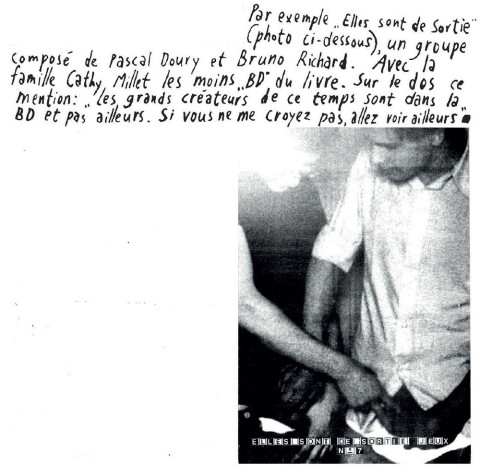 Par exemple „Elles sont de sortie"
(photo ci-dessous), un groupe
composé de Pascal Doury et Bruno Richard. Avec la
famille Cathy Millet les moins „BD" du livre. Sur le dos ce
mention: „les grands créateurs de ce temps sont dans la
BD et pas ailleurs. Si vous ne me croyez pas, allez voir ailleurs"
ELLES SONT DE SORTIE JEUX
N° 7